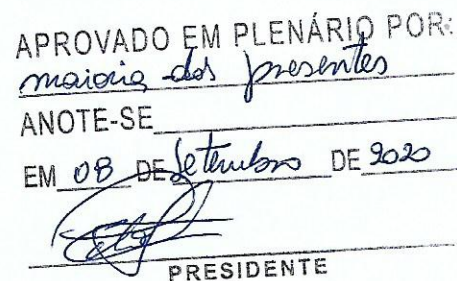 APROVADO EM PLENÁRIO POR:
maioria dos presentes
ANOTE-SE
EM 08 DE Setembro DE 2020
PRESIDENTE